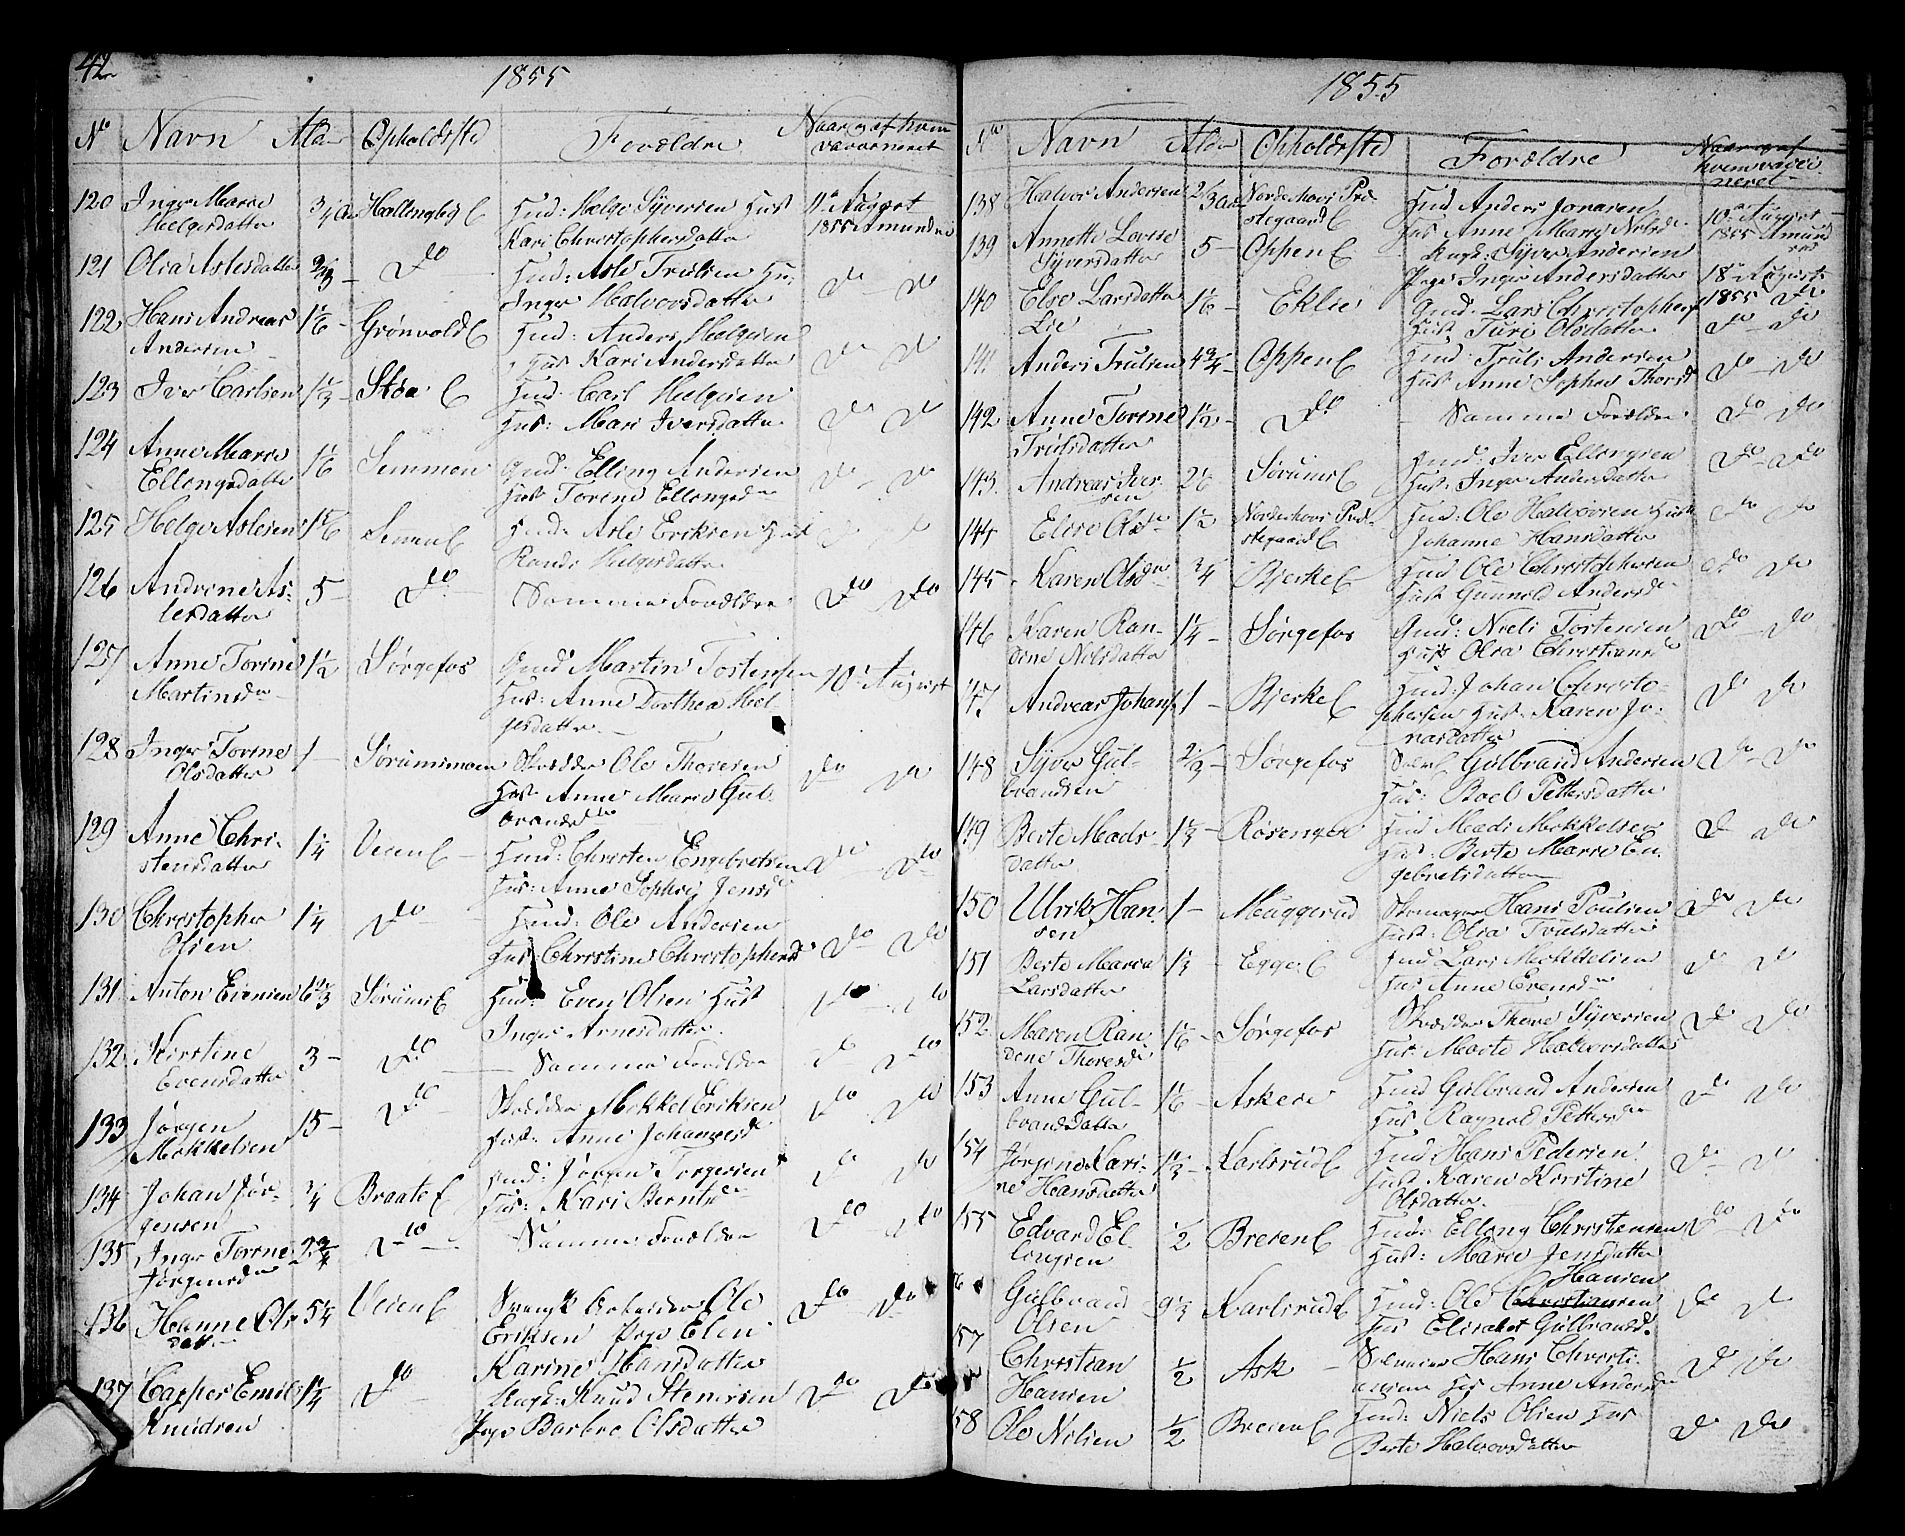 42
1855
No Navn Alder Opholdssted Forældre Naar og af hvem vaccineret
120 Inger Marie Helgesdatter 3/4 Aar Hallingby E Hmd: Helge Syversen Hust Kari Christophersdatter 11te August 1855 Amundsen
121 Olia Aslesdatter Do Hmd: Asle Trulsen Hu: Inger Halvorsdatter Do Do
122 Hans Andreas Andersen 1 1/6 Grönvold E Hmd: Anders Helgesen Hus Kari Andersdatter Do Do
123 Iver Carlsen 1 1/3 Stöa E Hmd: Carl Helgesen Hus: Mari Iversdatter Do Do
124 Anne Marie Ellingsdatter 1 1/6 Semmen Gmd: Elling Andersen Hust Torine Ellingsdr Do Do
125 Helge Aslesen 1 5/6 Semmen E Hmd: Asle Eriksen Hust Randi Helgesdatter Do Do
126 Andrine Aslesdatter 5 Do Samme Forældre Do Do
127 Anne Torine Martinsdr 1 1/2 Sörgefos Gmd Martin Tostensen Hust: Anne Dorthea Helgesdatter 10de August
128 Inger Torine Olsdatter 1 Sörumsmoen Skrædder Ole Thoresen Hust Anne Marie Gulbrandsdr Do Do
129 Anne Christensdatter 1 1/4 Veien E Hmd: Christen Engebretsen Hus: Anne Sophie Jensdr Do Do
130 Christopher Olsen 1 1/4 Do Hmd: Ole Andersen Hus: Christine Christophersd Do Do
131 Anton Evensen 6 2/3 Sörums E Hmd: Even Olsen Hust Inger Arnesdatter Do Do
132 Kirstine Evensdatter 3 Do Samme Forældre Do Do
133 Jörgen Mikkelsen 15 Do Skrædder Mikkel Eriksen Hust: Anne Johannesd Do Do
134 Johan Jörgensen 3/4 Braate E Hmd: Jörgen Torgersen Hus: Kari Berntsdr Do Do
135 Inger Torine Jörgensdr 2 3/4 Do Samme Forældre Do Do
136 Hanne Olsdatter 5 1/4 Veien E Svensk Arbeider Ole Eriksen Pige Elen Karine Hansdatter Do Do
137 Casper Emil Knudsen 1 1/4 Do Ungk: Knud Stensrsen Pige Barbro Olsdatter Do Do
1855
No Navn Alder Opholdssted Forældre Naar og af hvem vaccineret
138 Halvor Andersen 2/3 Aar Norderhovs Præstegaard E Hmd Anders Jonasen Hus Anne Marie Nilsdr 10de August 1855 Amundsen
139 Annette Lovise Syversdatter 5 Oppen E Ungk: Syver Andersen Pige Inger Andersdatter 18de August 1855 Do
140 Else Larsdatter Lie 1 1/6 Eklie Gmd: Lars Christophers Hust Turi Olsdatter Do Do
141 Anders Trulsen 4 3/4 Oppen E Hmd: Truls Andersen Hust Anne Sophie Thorsd Do Do
142 Anne Torine Trulsdatter 1 1/2 Do Samme Forældre Do Do
143 Andreas Iversen 2 1/6 Sörums E Hmd: Iver Ellingsen Hust: Inger Andersdatter Do Do
144 Elise Olsdr 1 1/2 Norderhovs Præstegaard E Hmd: Ole Halvorsen Hust Johanne Hansdatter Do Do
145 Karen Olsdr 3/4 Bjerke E Hmd Ole Christophersen Hust Gunild Andersdr Do Do
146 Karen Randine Nilsdatter 1 1/4 Sörgefos Gmd: Niels Tostensen Hust Olia Christiansdr Do Do
147 Andreas Johans 1 Bjerke E Hmd: Johan Christophersen Hust: Karen Jonasdatter Do Do
148 Syver Gulbrandsen 2/3 Sörgefos Gulbrand Andersen Hus: Boel Pettersdatter Do Do
149 Berte Madsdatter 1 1/3 Rösengen Hmd Mads Mikkelsen Hus: Berte Marie Engebretsdatter Do Do
150 Ulrik Hansen 1 Muggerud Skomager Hans Poulsen Hust: Olia Trulsdatter Do Do
151 Berte Maria Larsdatter 1 1/3 Egge E Hmd Lars Mikkelsen Hus Anne Evensdr Do Do
152 Maren Randine Thoresdr 1 1/6 Sörgefos Skrædder Thore Syversen Hus: Marte Halvorsdatter Do Do
153 Anne Gulbrandsdatter 1 1/6 Askere Hmd Gulbrand Andersen Hus Ragnild Pettersdr Do Do
154 Jörgine Karine Hansdatter Karlsrud E Hmd Hans Pedersen Hust Karen Kirstine Olsdatter Do Do
155 Edvard Ellingsen 1/2 Breien E Hmd: Elling Christensen Hust: Marie Jensdatter Do Do
56 Gulbrand Olsen 9 1/3 Karlsrud E Hmd: Ole Christiansen Hansen Hus Elisabet Gulbrandsd Do Do
157 Christian Hansen 1/2 Ask Hans Christiansen Hus Anne Andersdr Do Do
58 Ole Nilsen 1/2 Breien E Hmd: Niels Olsen Hus Berte Halvorsdatter Do Do